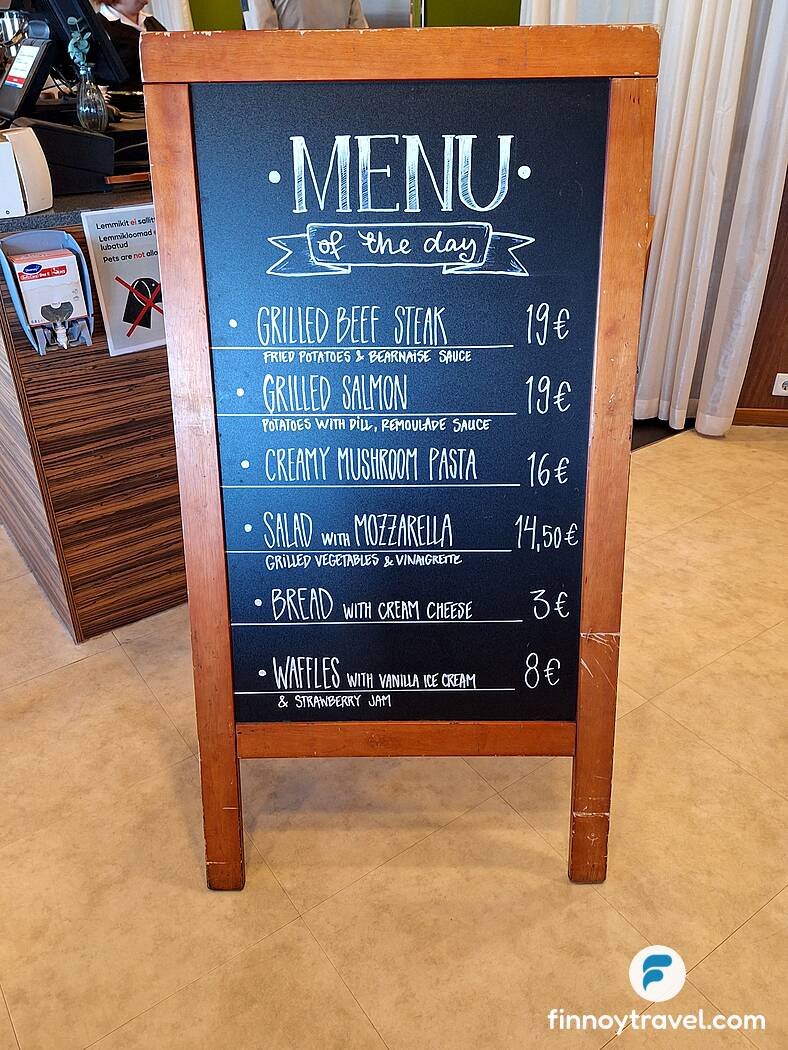 MENU
of the day
GRILLED BEEF STEAK 19€
FRIED POTATOES & BEARNAISE SAUCE
GRILLED SALMON 19€
POTATOES WITH DILL, REMOULADE SAUCE
CREAMY MUSHROOM PASTA 16€
SALAD WITH MOZZARELLA 14,50€
GRILLED VEGETABLES & VINAIGRETTE
BREAD WITH CREAM CHEESE 3€
WAFFLES WITH VANILLA ICE CREAM 8€
& STRAWBERRY JAM
Lemmikit ei
Lemmikloomad
lubatud
Pets are not
finnoytravel.com